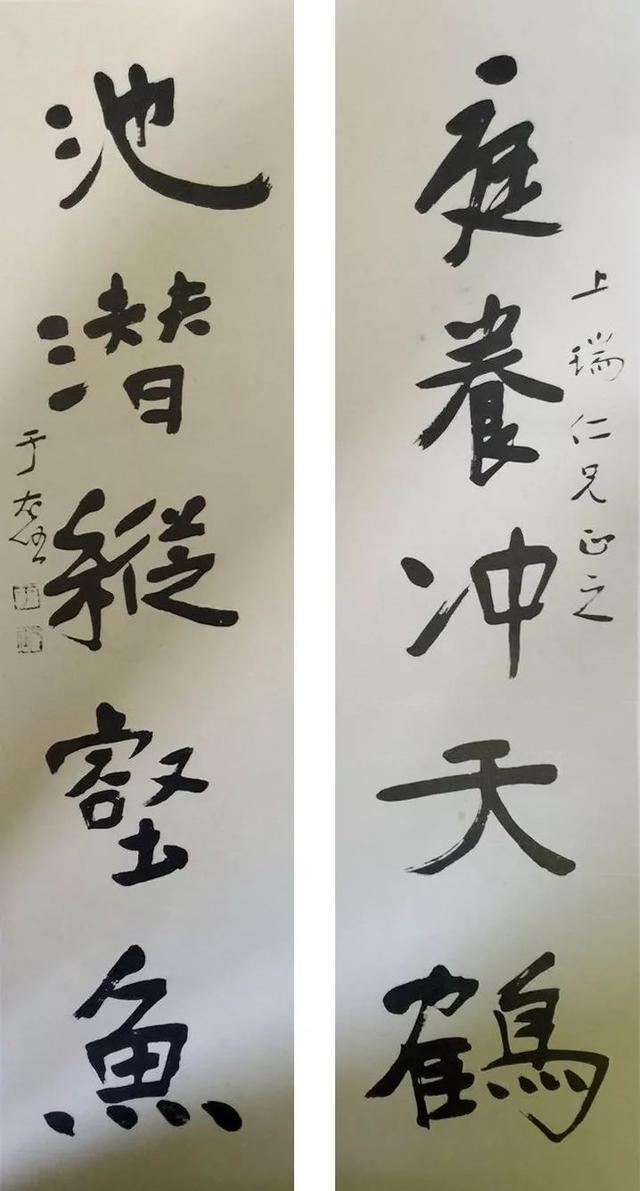 庭養冲天鶴
上瑞仁兄正之
池潛縱壑魚
于右任